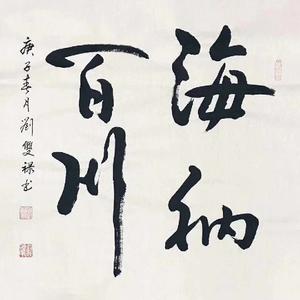 海纳
百川
庚子春月刘双禄书